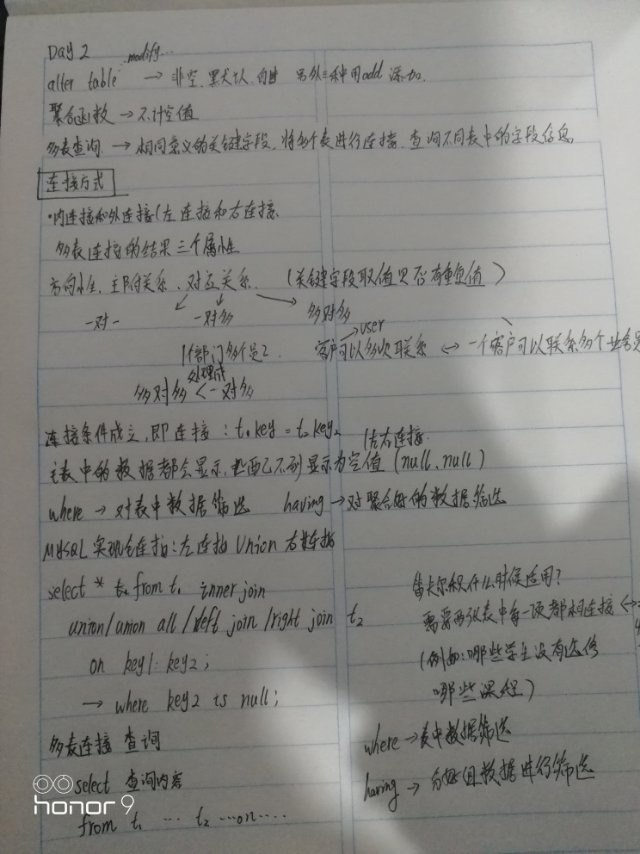 Day 2 modify...
alter table → 非空、默认、自增 另外三种用add 添加.
聚合函数 → 不计空值
多表查询 → 相同意义的关键字段，将多个表进行连接，查询不同表中的字段信息
连接方式
·内连接和外连接(左连接和右连接.
多表连接的结果三个属性
方向性、主附关系、对应关系. (关键字段取值是否有重复值)
一对一 一对多 多对多
user
1个部门多个员工. 客户可以多次联系 ↔ 一个客户可以联系多个业务员
处理成
多对多 < 一对多
连接条件成立，即连接：t₁ key = t₂ key₂ (左右连接
主表中的数据都会显示，匹配不到显示为空值 (null, null)
where → 对表中数据筛选 having → 对聚合后的数据筛选
MySQL 实现全连接：左连接 Union 右连接
select * t₂ from t₁ inner join
union/union all /left join /right join t₂
on key1 = key2;
→ where key2 is null;
多表连接 查询
select 查询内容
from t₁ ... t₂ ...on....
笛卡尔积什么时候适用？
需要两张表中每一项都相连接 ↔
(例如：哪些学生没有选修
哪些课程)
where → 表中数据筛选
having → 分组后数据进行筛选
honor 9